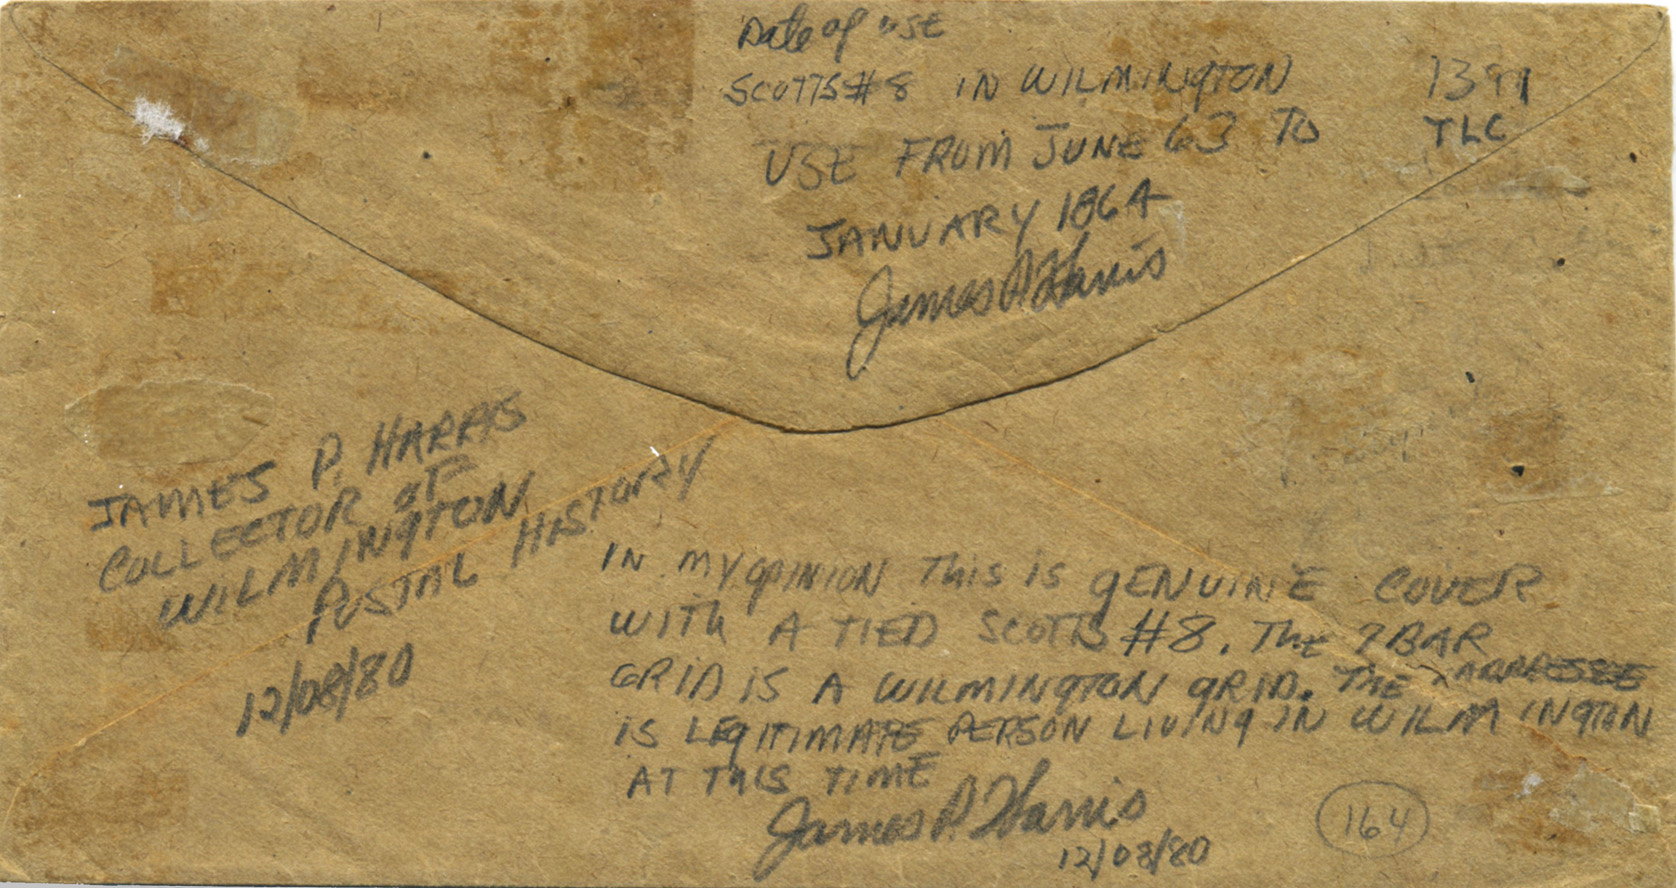 Date of USE
SCOTTS #8 IN WILMINGTON
USE FROM JUNE 63 TO
JANUARY 1864
James P. Harris
1391
TLC
JAMES P. HARRIS
COLLECTOR OF
WILMINGTON
POSTAL HISTORY
12/08/80
IN MY OPINION THIS IS GENUINE COVER
WITH A TIED SCOTTS #8. THE 7 BAR
GRID IS A WILMINGTON GRID. THE ADDRESSEE
IS LEGITIMATE PERSON LIVING IN WILMINGTON
AT THIS TIME
James P. Harris
12/08/80
164